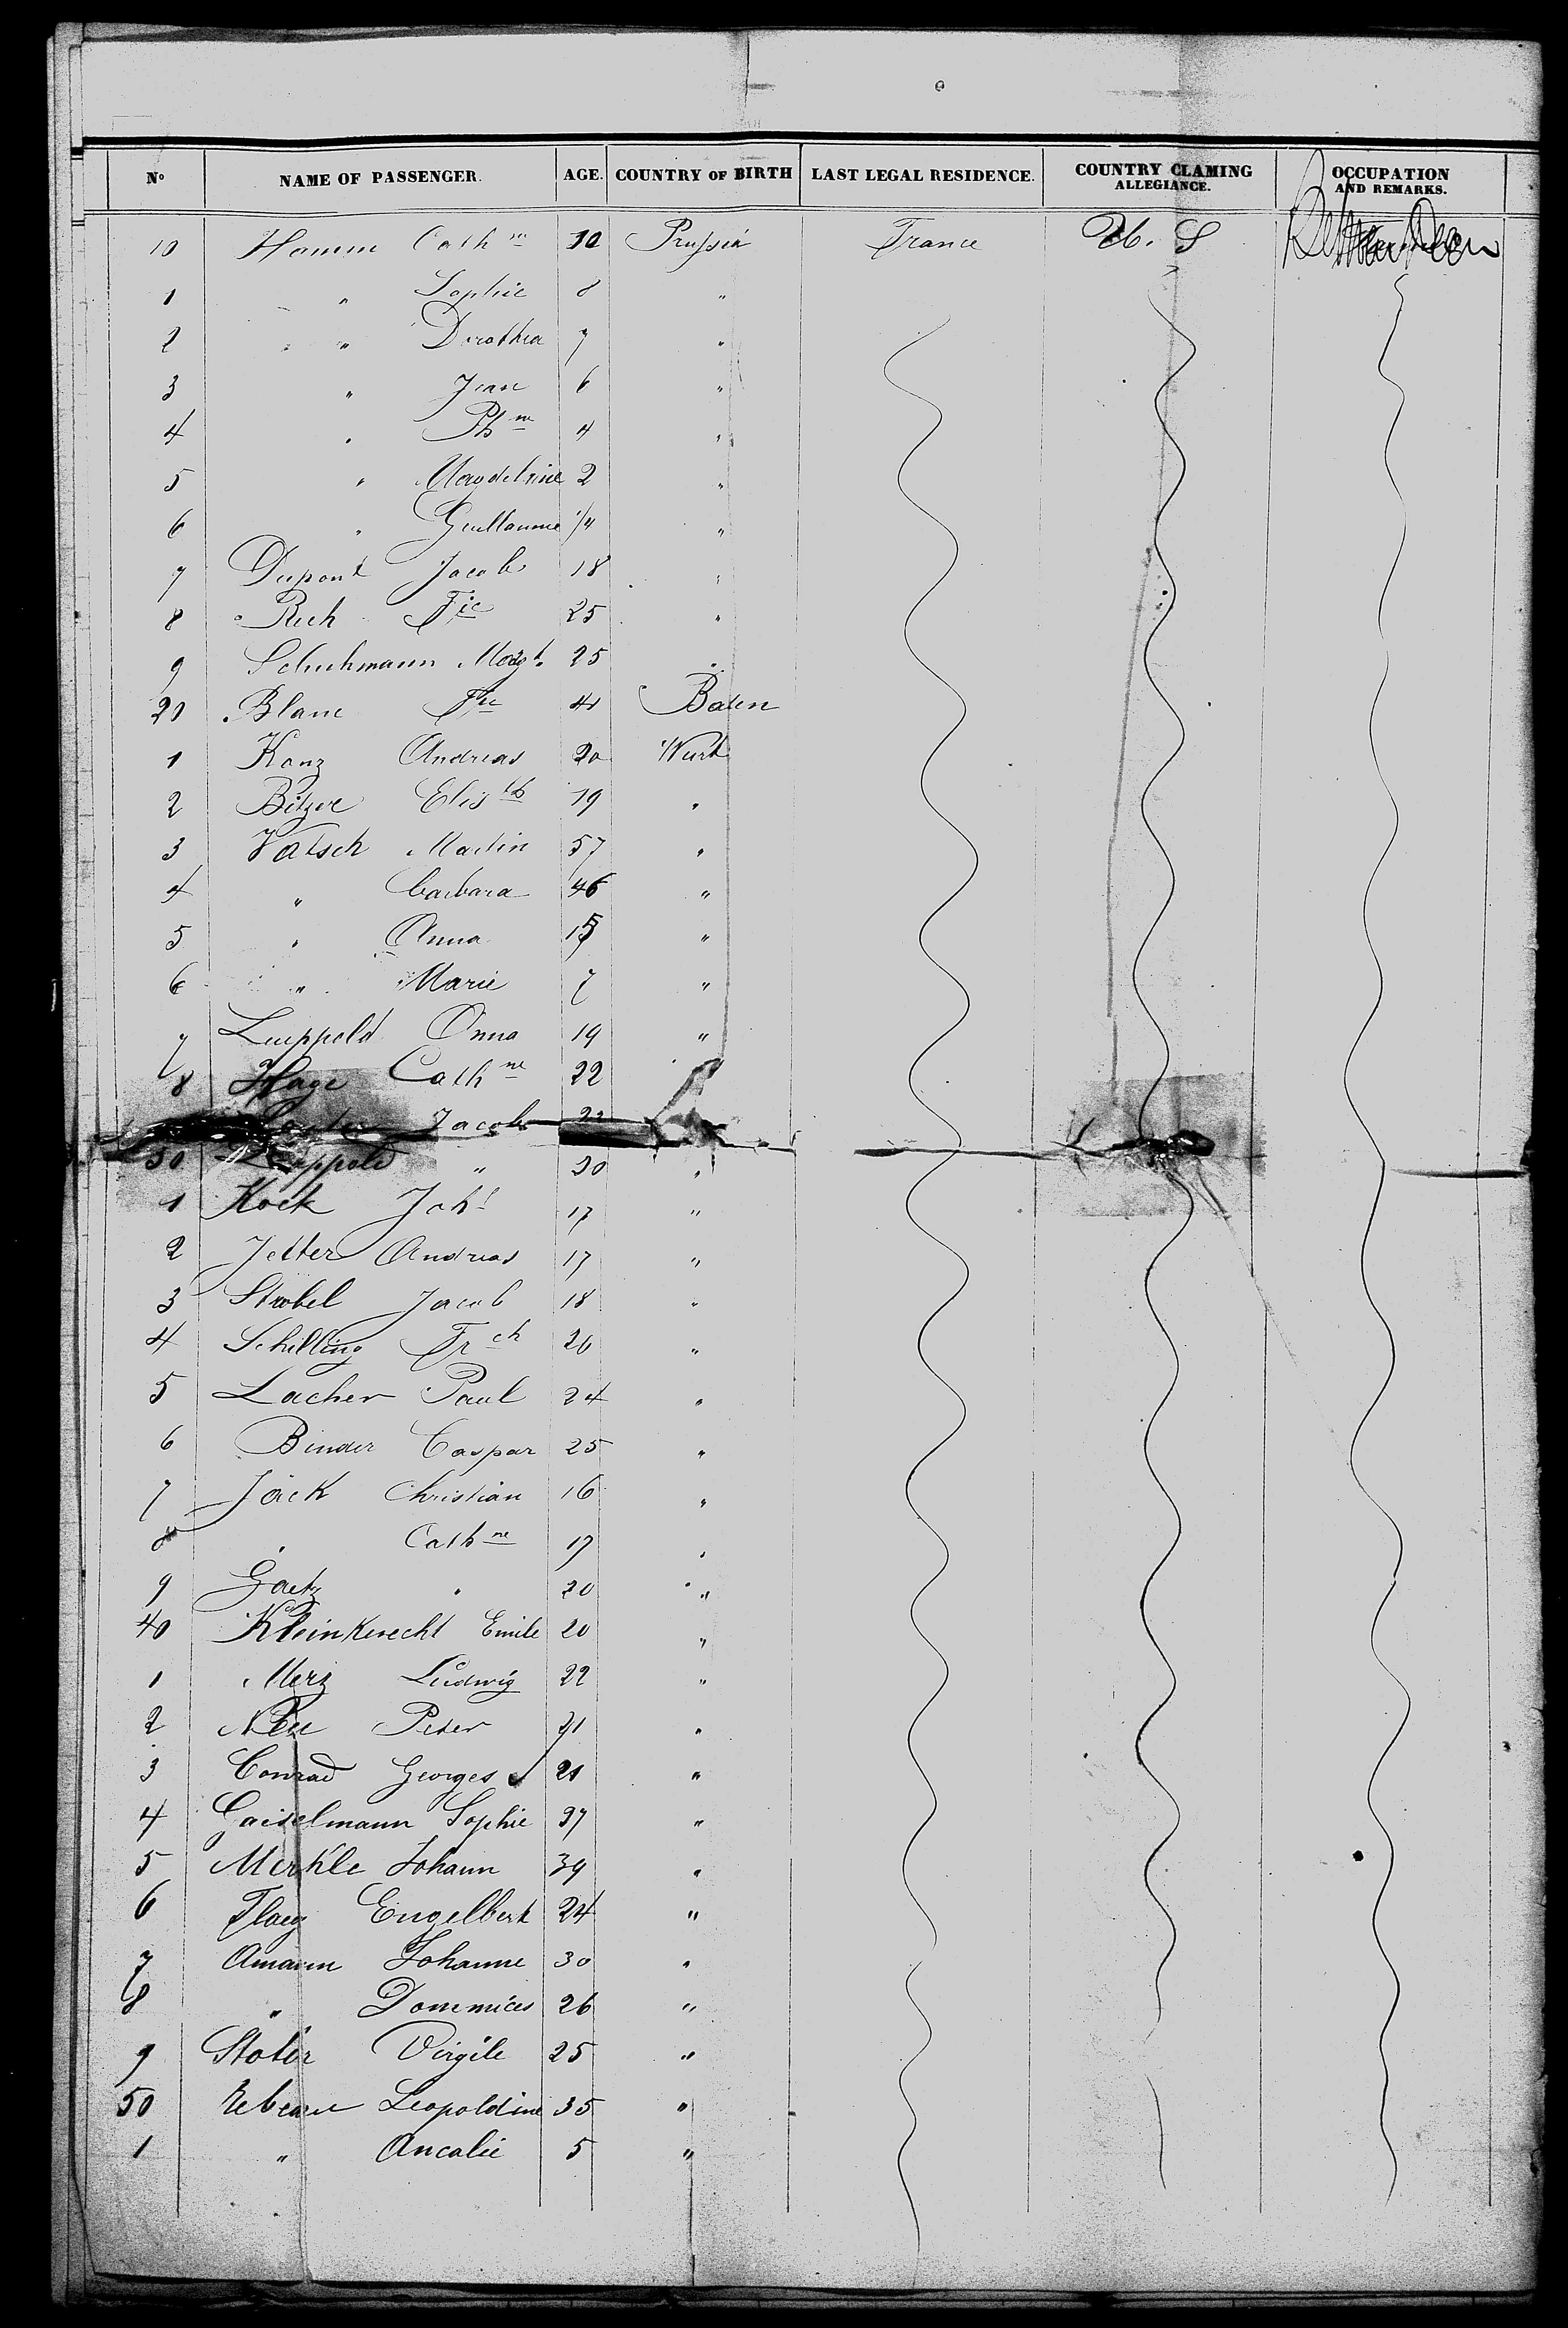 Nº NAME OF PASSENGER. AGE. COUNTRY OF BIRTH LAST LEGAL RESIDENCE. COUNTRY CLAMING ALLEGIANCE. OCCUPATION AND REMARKS.
10 Hamm Cathne 10 Prussia France U. S
1 " Sophie 8 "
2 " Dorothea 7 "
3 " Jean 6 "
4 " 4 "
5 " 2 "
6 " Guillaume 1/4 "
7 Dupont Jacob 18 "
8 25 "
9 Schuhmann Margt. 25 "
20 Blanc Baden
1 Kanz Andreas 20 Wurt
2 Bitzer Elisth 19 "
3 Vatsch Martin 57 "
4 " Barbara 46 "
5 " Anna "
6 " Marie 7 "
7 Luppold Anna 19 "
8 Hage Cathne 22
Jacob 22
30 Luppold " 30 "
1 Kock Joh 17 "
2 Jetter Andreas 17 "
3 Strobel Jacob 18 "
4 Schilling Frch 26 "
5 Lacher Paul 24 "
6 Binder Caspar 25 "
7 Jäck Christian 16 "
8 " Cathne 17 "
9 Gaetz " 20 "
40 Kleinknecht Emile 20 "
1 Merz Ludwig 22 "
2 Neu Peter 21 "
3 Conrad Georges 21 "
4 Gaiselmann Sophie 37 "
5 Merkle Johann 39 "
6 Flaig Engelbert 24 "
7 Amann Johanne 30 "
8 " 26 "
9 Virgile 25 "
50 Leopoldine 35 "
1 " 5 "